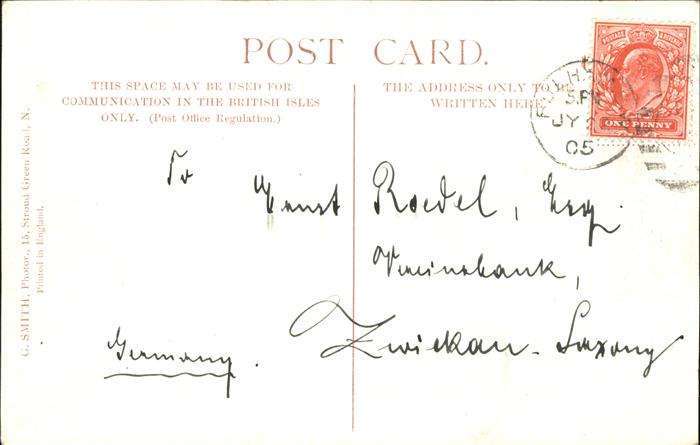 POST CARD.
THIS SPACE MAY BE USED FOR
COMMUNICATION IN THE BRITISH ISLES
ONLY. (Post Office Regulation.)
THE ADDRESS ONLY TO
WRITTEN HERE
POSTAGE & REVENUE
ONE PENNY
JY
05
To Ernst Roedel, Esq.
Vereinsbank,
Zwickau - Saxony
Germany.
C. SMITH, Photor., 15, Stroud Green Road, N.
Printed in England.